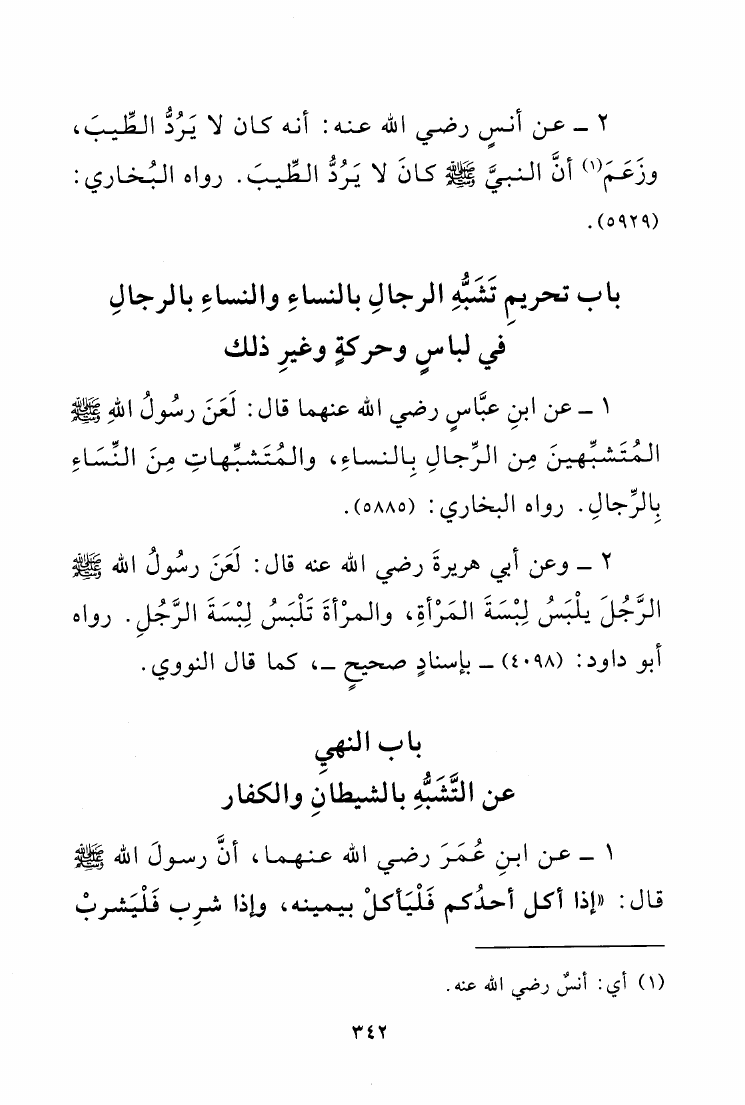 ٢ ـ عن أنسٍ رضي الله عنه: أنه كان لا يَرُدُّ الطِّيبَ،
وزَعَمَ(١) أنَّ النبيَّ ﷺ كانَ لا يَرُدُّ الطِّيبَ. رواه البُخاري:
(٥٩٢٩).
باب تحريمِ تَشَبُّهِ الرجالِ بالنساءِ والنساءِ بالرجالِ
في لباسٍ وحركةٍ وغيرِ ذلك
١ ـ عن ابنِ عبَّاسٍ رضي الله عنهما قال: لَعَنَ رسُولُ اللهِ ﷺ
المُتَشبِّهينَ مِن الرِّجالِ بِالنساءِ، والمُتَشبِّهاتِ مِنَ النِّسَاءِ
بِالرِّجالِ. رواه البخاري: (٥٨٨٥).
٢ ـ وعن أبي هريرةَ رضي الله عنه قال: لَعَنَ رسُولُ الله ﷺ
الرَّجُلَ يلْبَسُ لِبْسَةَ المَرْأةِ، والمرْأةَ تَلْبَسُ لِبْسَةَ الرَّجُلِ. رواه
أبو داود: (٤٠٩٨) ـ بإسنادٍ صحيحٍ ـ، كما قال النووي.
باب النهيِ
عن التَّشَبُّهِ بالشيطانِ والكفار
١ ـ عن ابنِ عُمَرَ رضي الله عنهما، أنَّ رسولَ الله ﷺ
قال: «إذا أكل أحدُكم فَلْيَأكلْ بيمينه، وإذا شرِب فَلْيَشربْ
(١) أي: أنسٌ رضي الله عنه.
٣٤٢